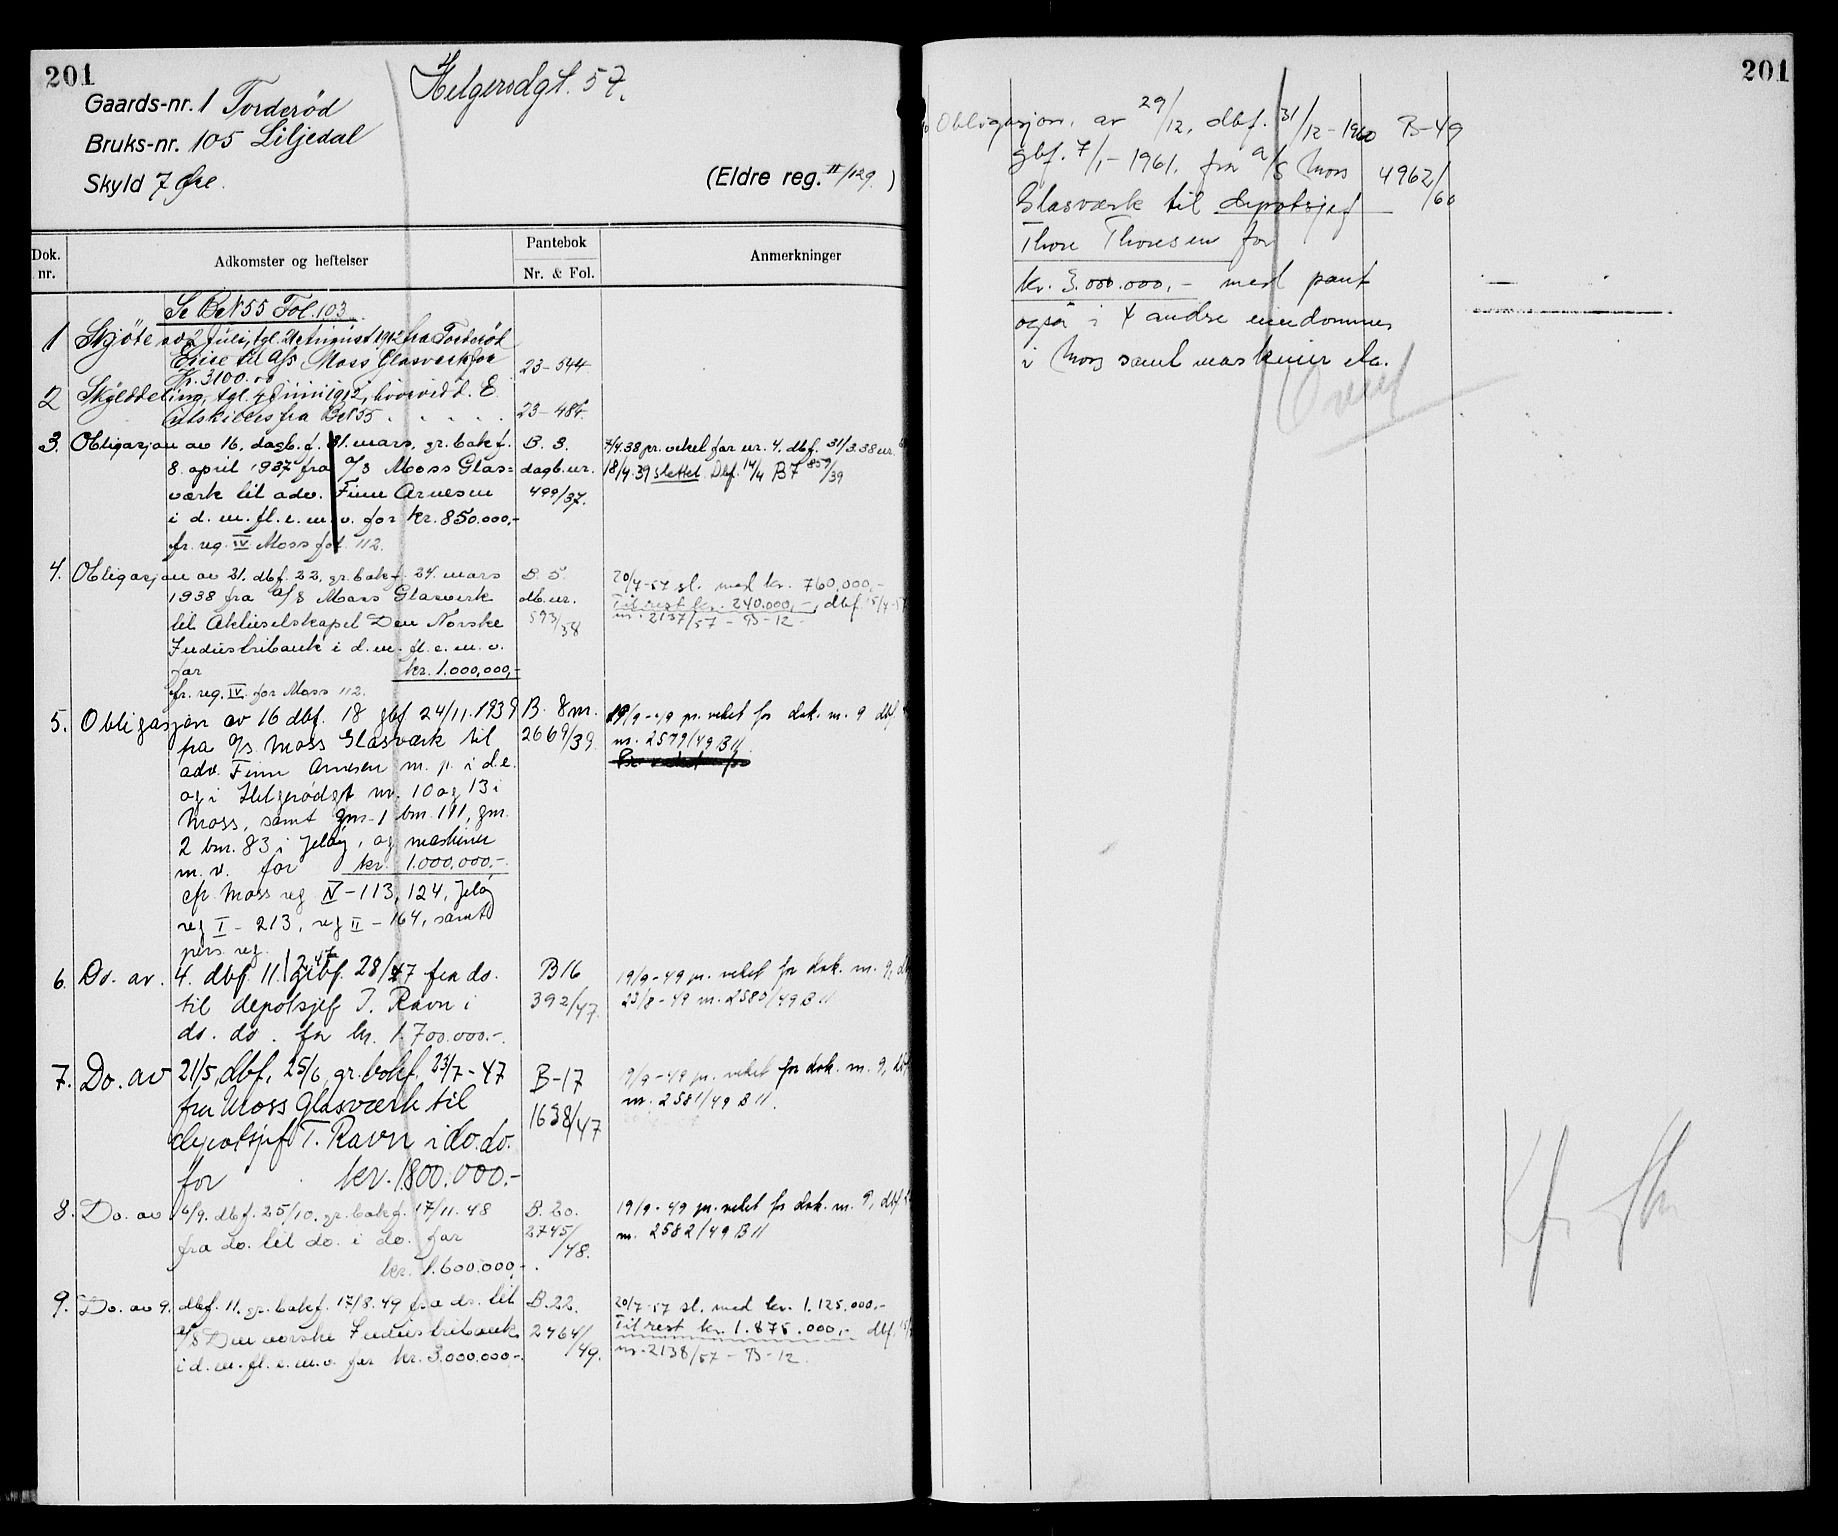 201
Helgerødgt. 57.
Gaards-nr. 1 Torderød
Bruks-nr. 105 Liljedal
Skyld 7 Øre.
(Eldre reg. II/129.)
Dok. nr.
Adkomster og heftelser
Pantebok
Nr. & Fol.
Anmerkninger
Se BrN 55 Fol. 103
1 Skjøte av 2 Juli, tgl. August 1912 fra Torderød
Eiere til A/S Moss Glasverk for
Kr. 3100.00
23-544
2 Skylddeling, tgl. 4 Juni 1912, hvorved d. E.
utskilles fra BrN 55
23-484
3. Obligasjon av 16, dagb.f. 31. mars, gr. bokf.
8. april 1937 fra A/S Moss Glas=
værk til adv. Finn Arnesen
i d. m. fl. e. m. v. for kr. 850.000,-
fr. reg. IV Moss fol. 112.
B. 3.
dagb.nr.
499/37.
7/4.38 pr. veket for nr. 4. dbf. 31/3.38 nr.
18/4.39 slettet Dbf. 14/4 B7 859/39
4. Obligasjon av 21. dbf. 22, gr. bokf. 24. mars
1938 fra A/S Moss Glasverk
til Aktieselskapet Den Norske
Industribank i d. m. fl. e. m. v.
for kr. 1.000.000,-
fr. reg. IV for Moss 112.
B. 5.
db.nr.
593/38
20/7-57 sl. med kr. 760.000,-
Til rest kr. 240.000,-, dbf. 15/7-57
nr. 2137/57 - B-12
5. Obligasjon av 16 dbf. 18 gbf 24/11.1939
fra A/S Moss Glasværk til
adv. Finn Arnesen m. p. i d.e.
og i Helgerødgt nr. 10 og 13 i
Moss, samt gnr. 1 bnr. 111, gnr.
2 bnr. 83 i Jeløy, og maskiner
m. v. for kr. 1.000.000,-.
cfr. Moss reg IV - 113, 124, Jeløy
reg I - 213, reg II - 164, samt
pers. reg.
B. 8 nr.
2669/39.
19/9-49 pr. veket for dok. nr. 9 dbf.
nr. 2579/49 B 11.
6. Do. av. 4. dbf. 11/2 gr.bf. 28/47 fra do.
til depotsjef T. Ravn i
do. do. for kr. 1.700.000.-.
B 16
392/47.
19/9-49 pr. veket for dok. nr. 9,
23/8-49 nr. 2580/49 B 11
7. Do. av 21/5, dbf. 25/6, gr.bokf. 23/7-47
fra Moss Glasværk til
depotsjef T. Ravn i do. do.
for kr. 1800.000.-
B-17
1638/47
19/9-49 pr. veket for dok. nr. 9, dbf
nr. 2581/49 B 11.
8. Do. av 16/9. dbf. 25/10, gr. bokf. 17/11.48
fra do. til do. i do. for
kr. 1.600.000,-.
B. 20.
2745/48.
19/9-49 pr. veket for dok. nr. 9, dbf
nr. 2582/49 B 11
9. Do. av 9. dbf. 11. gr. bokf. 17/8.49 fra do. til
A/S Den norske Industribank
i d. m. fl. e. m. v. for kr. 3.000.000,-.
B. 22.
2464/49.
20/7-57 sl. med kr. 1.125.000,-
Til rest kr. 1.875.000,- dbf. 15/7
nr. 2138/57 - B-12.
201
10 Obligasjon. av 29/12, dbf. 31/12-1960 B-49
gbf. 7/1-1961. fra A/S Moss 4962/60
Glasværk til depotsjef
Thore Thoresen for
kr. 3.000.000,- med pant
også i 4 andre eiendommer
i Moss samt maskiner etc.